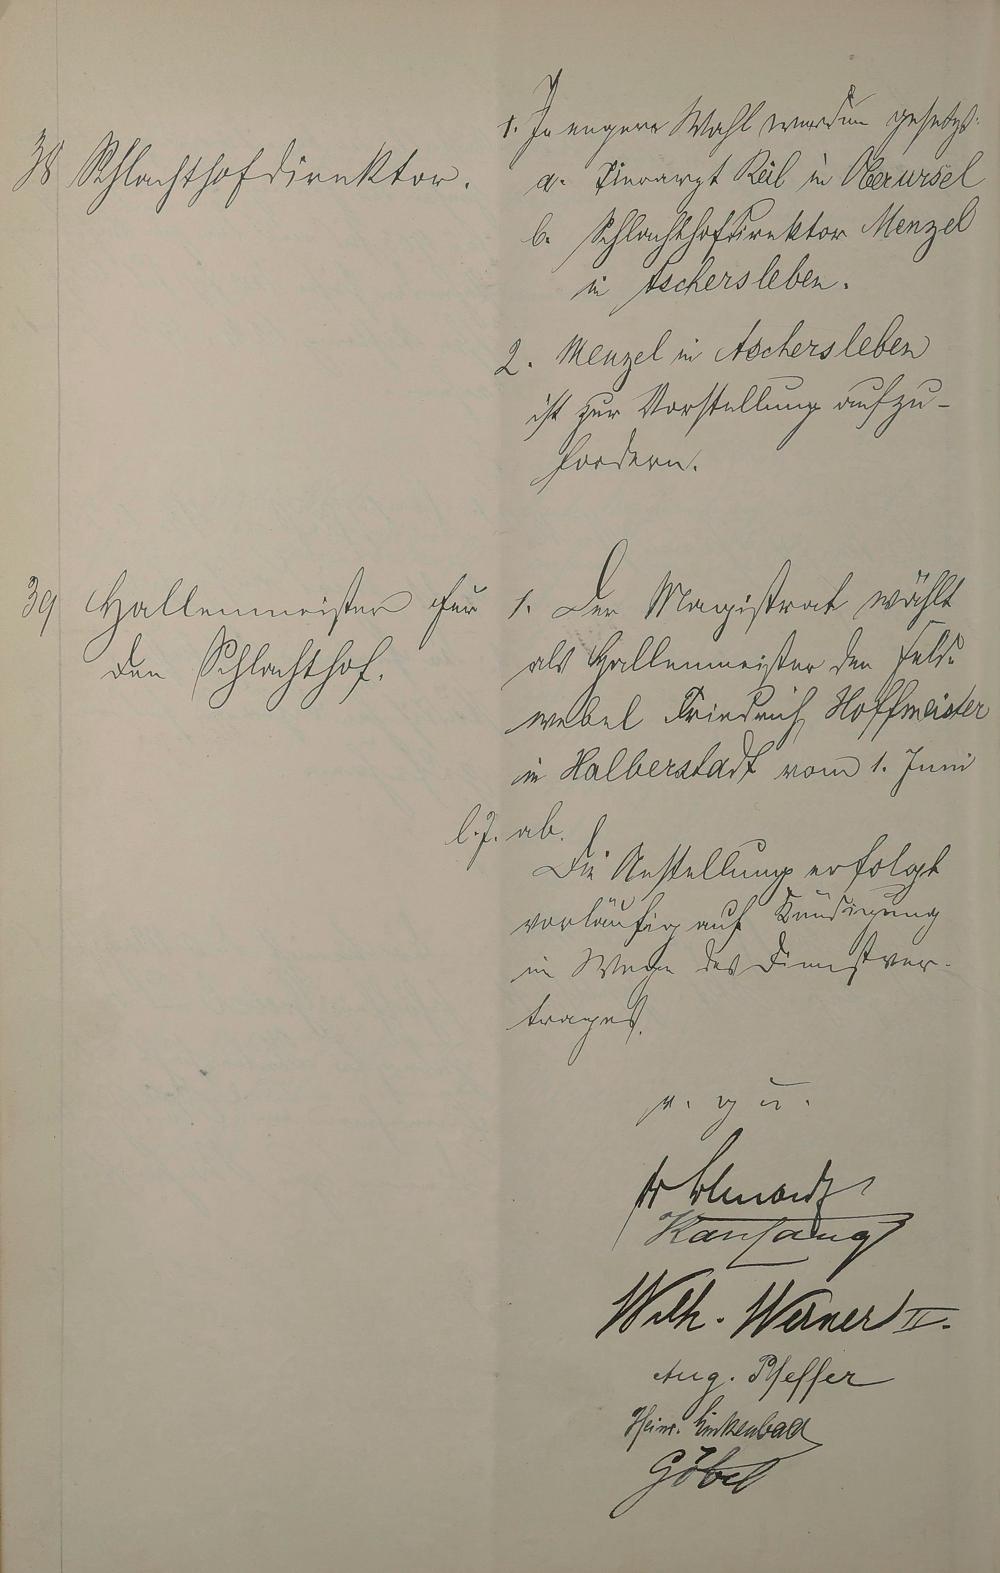 38 Schlachthofdirektor.
1. In engere Wahl wurden gesetzt:
a. Tierarzt Reil in Oberursel
b. Schlachthofdirektor Menzel
in Aschersleben.
2. Menzel in Aschersleben
ist zur Vorstellung aufzu-
fordern.
39 Hallenmeister für
den Schlachthof.
1. Der Magistrat wählt
als Hallenmeister den Feld-
webel Friedrich Hoffmeister
in Halberstadt vom 1. Juni
l. J. ab.
Die Anstellung erfolgt
vorläufig auf Kündigung
im Wege des Dienstver-
trages.
v. g. u.
Wilh. Werner II.
Aug. Pfeffer
Heinr. Linkenbad
Göbel